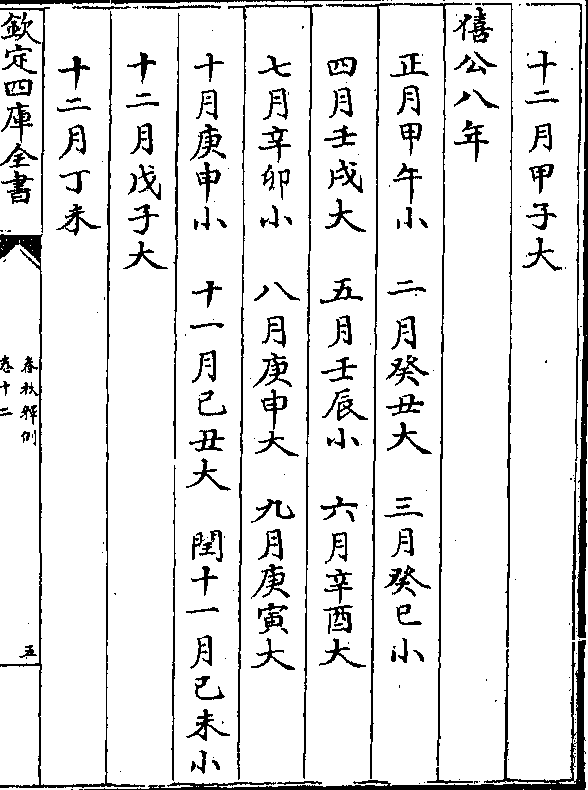 十二月甲子大
僖公八年
正月甲午小 二月癸丑大 三月癸巳小
四月壬戌大 五月壬辰小 六月辛酉大
七月辛卯小 八月庚申大 九月庚寅大
十月庚申小 十一月己丑大 閏十一月己未小
十二月戊子大
十二月丁未
欽定四庫全書
春秋釋例
卷十二
五